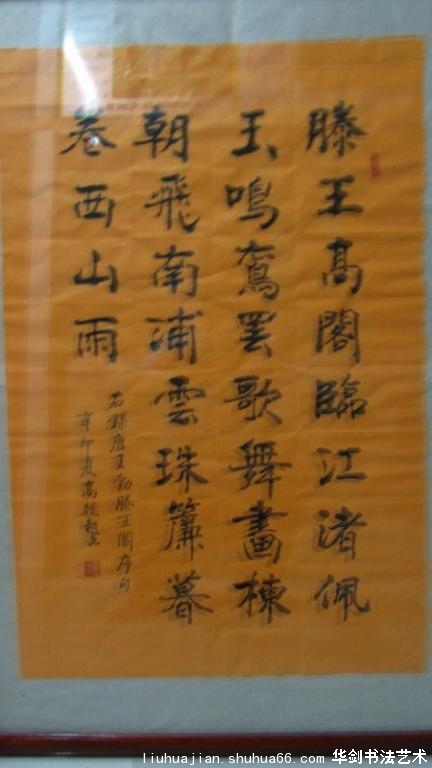 滕王高閣臨江渚佩
玉鳴鸞罷歌舞畫棟
朝飛南浦雲珠簾暮
卷西山雨
右錄唐王勃滕王閣序句
辛卯夏高
liuhuajian.shuhua66.com 华剑书法艺术